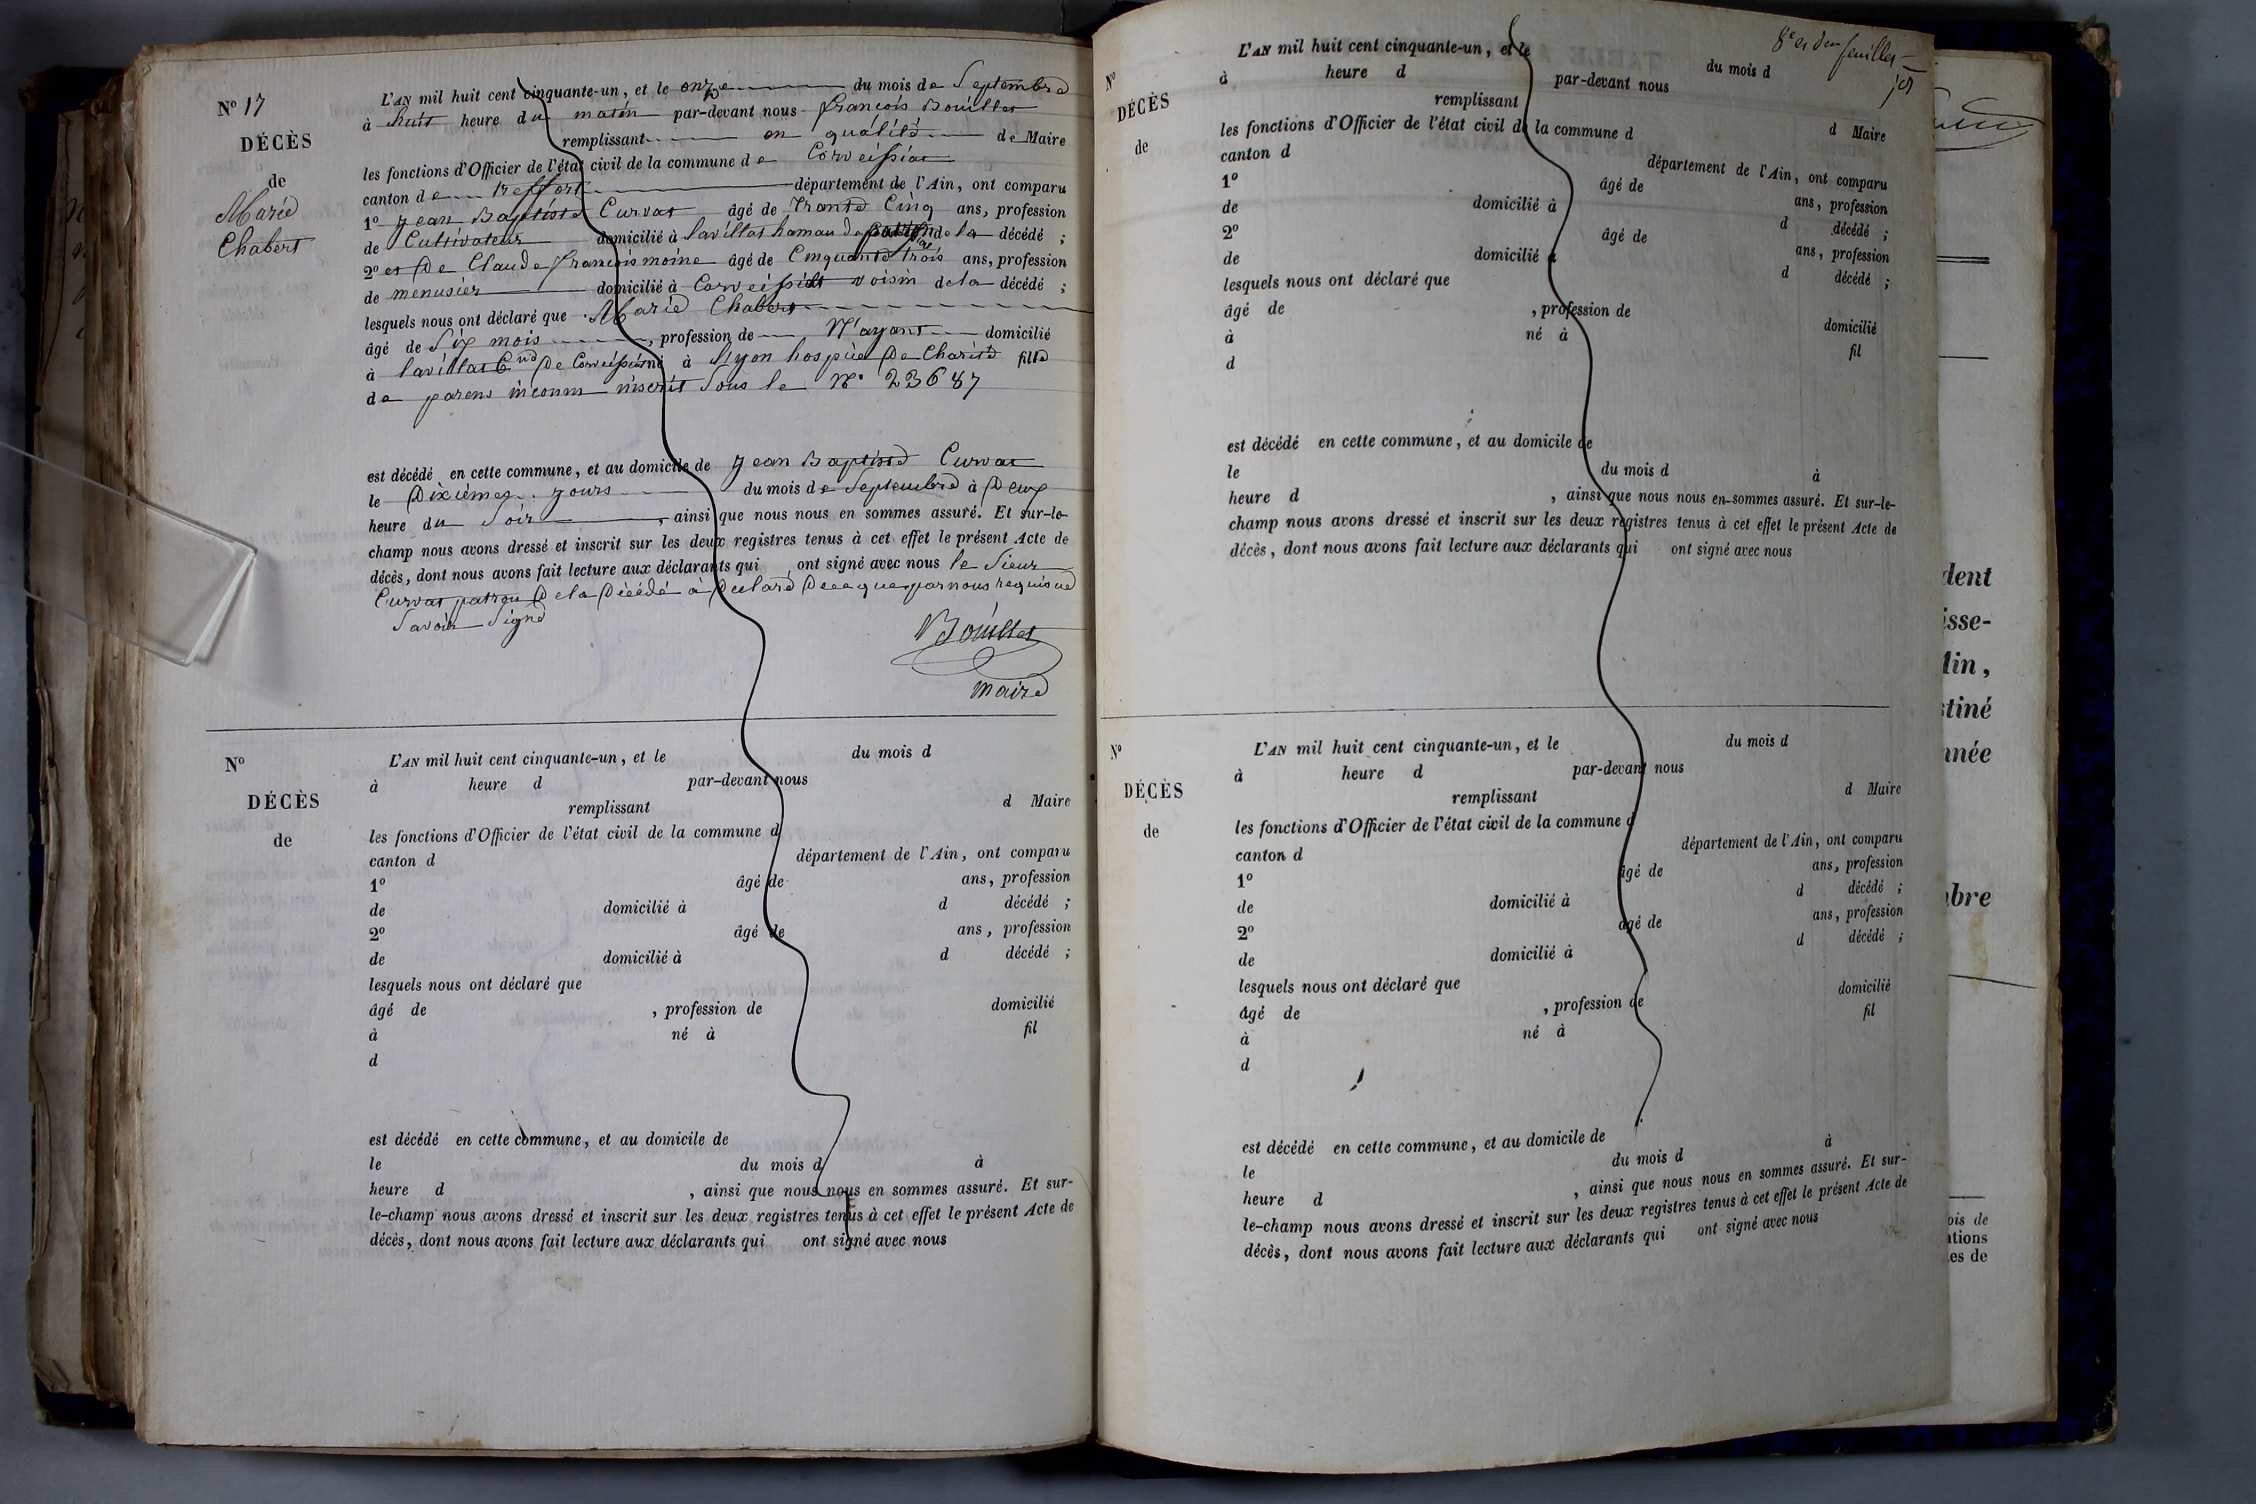 N° 17
DÉCÈS
de
Marie
Chabert
L'AN mil huit cent cinquante-un, et le onze du mois de Septembre
à huit heure du matin par-devant nous françois Bouillet
remplissant en qualité de Maire
les fonctions d'Officier de l'état civil de la commune de Corveissiat
canton de treffort département de l'Ain, ont comparu
1° Jean Baptiste Curvat âgé de Trante Cinq ans, profession
de Cultivateur domicilié à lavillat hamau de de la décédé ;
2° et De Claude françois moine âgé de Cinquante trois ans, profession
de menusier domicilié à Corveissiat voisin de la décédé ;
lesquels nous ont déclaré que Marie Chabert
âgé de Six mois , profession de N'ayant domicilié
à lavillat Cne De Corveissiat né à Lyon hospice De Charité fille
de parens inconnu inscrit Sous le N° 23687
est décédé en cette commune, et au domicile de Jean Baptiste Curvat
le Dixièmes jours du mois de Septembre à Deux
heure du Soir , ainsi que nous nous en sommes assuré. Et sur-le-
champ nous avons dressé et inscrit sur les deux registres tenus à cet effet le présent Acte de
décès, dont nous avons fait lecture aux déclarants qui ont signé avec nous le Sieur
Curvat patron De la Décédé à Déclaré De ce que par nous requis ne
Savoir Signé
Bouillet
maire
N°
DÉCÈS
de
L'AN mil huit cent cinquante-un, et le du mois d
à heure d par-devant nous
remplissant d Maire
les fonctions d'Officier de l'état civil de la commune d
canton d département de l'Ain, ont comparu
1° âgé de ans, profession
de domicilié à d décédé ;
2° âgé de ans, profession
de domicilié à d décédé ;
lesquels nous ont déclaré que
âgé de , profession de domicilié
à né à fil
d
est décédé en cette commune, et au domicile de
le du mois d à
heure d , ainsi que nous nous en sommes assuré. Et sur-
le-champ nous avons dressé et inscrit sur les deux registres tenus à cet effet le présent Acte de
décès, dont nous avons fait lecture aux déclarants qui ont signé avec nous
8e et feuillet
N°
DÉCÈS
de
L'AN mil huit cent cinquante-un, et le du mois d
à heure d par-devant nous
remplissant d Maire
les fonctions d'Officier de l'état civil de la commune d
canton d département de l'Ain, ont comparu
1° âgé de ans, profession
de domicilié à d décédé ;
2° âgé de ans, profession
de domicilié à d décédé ;
lesquels nous ont déclaré que
âgé de , profession de domicilié
à né à fil
d
est décédé en cette commune, et au domicile de
le du mois d à
heure d , ainsi que nous nous en-sommes assuré. Et sur-le-
champ nous avons dressé et inscrit sur les deux registres tenus à cet effet le présent Acte de
décès, dont nous avons fait lecture aux déclarants qui ont signé avec nous
N°
DÉCÈS
de
L'AN mil huit cent cinquante-un, et le du mois d
à heure d par-devant nous
remplissant d Maire
les fonctions d'Officier de l'état civil de la commune d
canton d département de l'Ain, ont comparu
1° âgé de ans, profession
de domicilié à d décédé ;
2° âgé de ans, profession
de domicilié à d décédé ;
lesquels nous ont déclaré que
âgé de , profession de domicilié
à né à fil
d
est décédé en cette commune, et au domicile de
le du mois d à
heure d , ainsi que nous nous en sommes assuré. Et sur-
le-champ nous avons dressé et inscrit sur les deux registres tenus à cet effet le présent Acte de
décès, dont nous avons fait lecture aux déclarants qui ont signé avec nous
dent
isse-
Ain,
stiné
nnée
bre
ois de
ations
es de